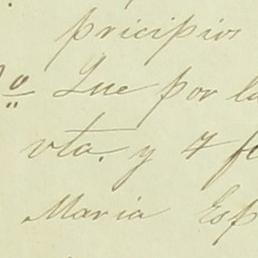 pricipios
º Que por la
vta. y 4 f
Maria Esp